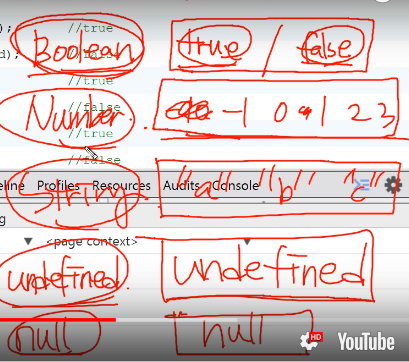 ); //true
Boolean true / false
d); //false
//true
//false
Number. -1 0 0.1 2 3
//true
//false
eline Profiles Resources Audits Console
String "a" "b" "c"
g
▼ <page context> ▼
undefined. undefined
null null
HD YouTube